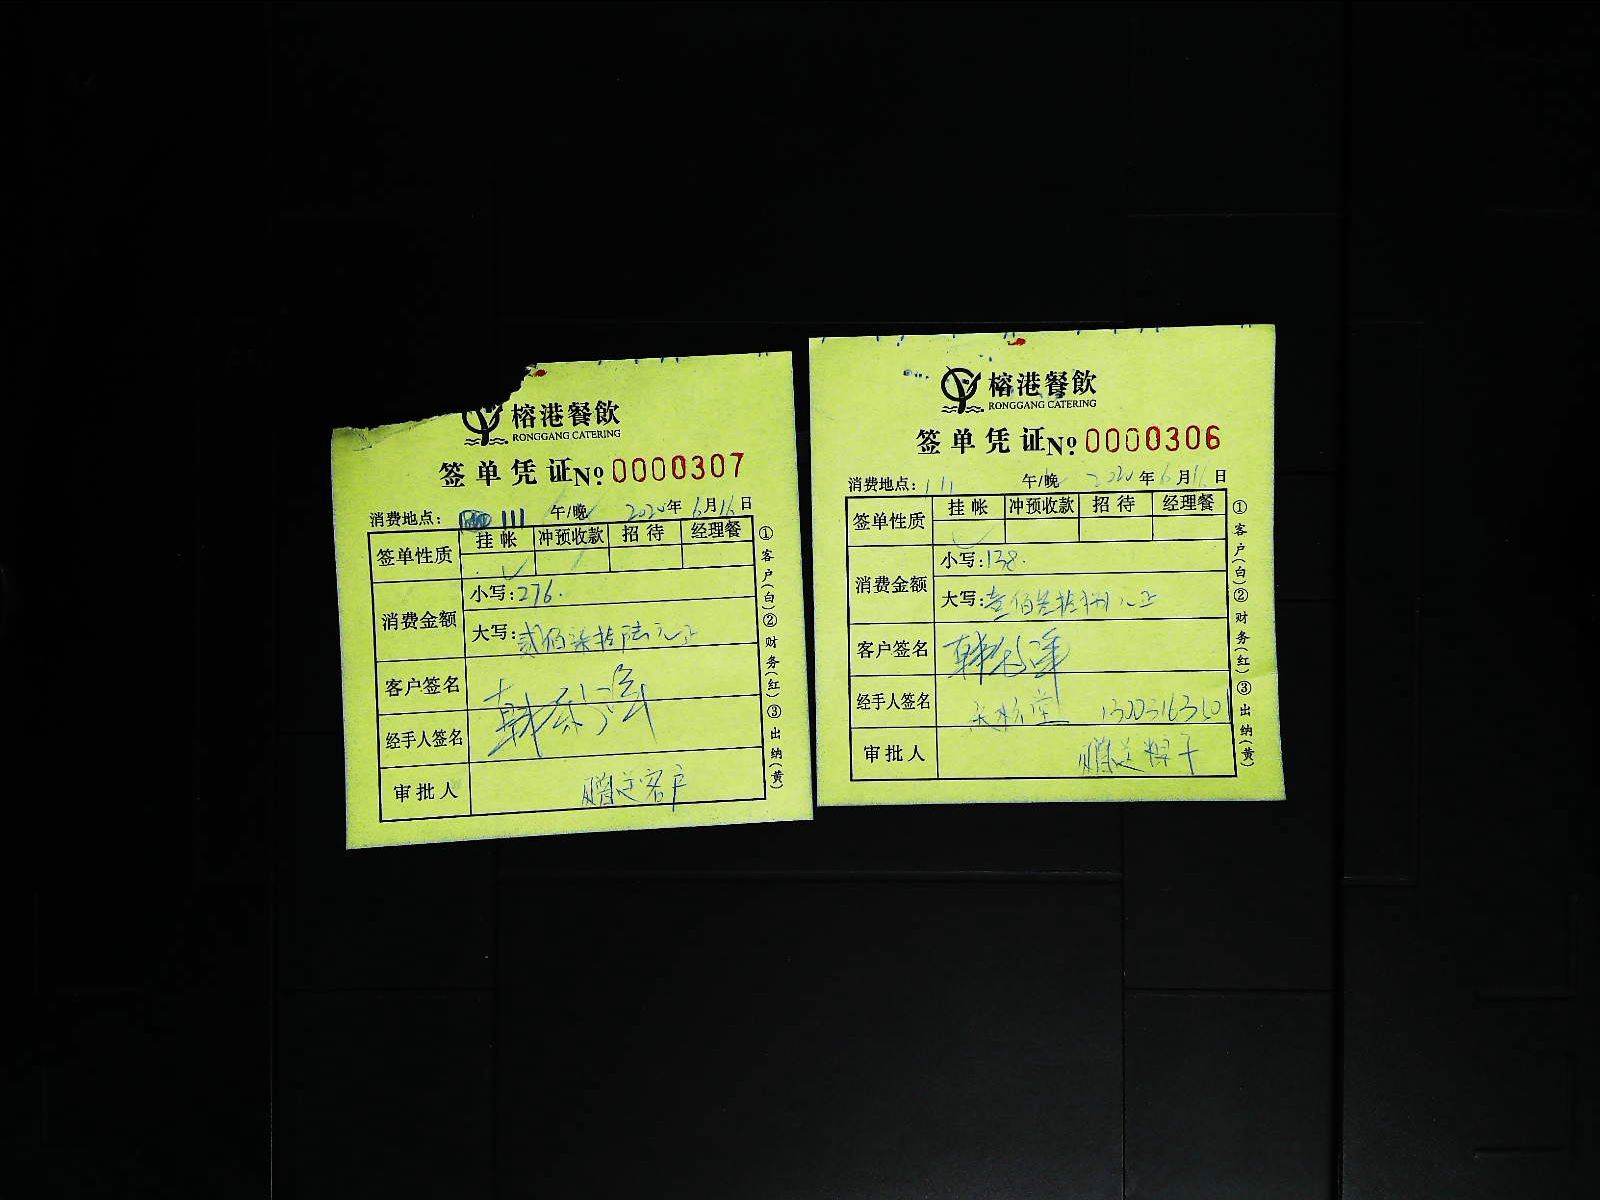 榕港餐飲
RONGGANG CATERING
签单凭证№ 0000307
消费地点: 111 午/晚 2020年6月16日
签单性质 挂帐 冲预收款 招待 经理餐
消费金额 小写:276.
大写:贰佰柒拾陆元正
客户签名
经手人签名
审批人 赠送客户
①客户(白)②财务(红)③出纳(黄)
榕港餐飲
RONGGANG CATERING
签单凭证№ 0000306
消费地点: 111 午/晚 2020年6月11日
签单性质 挂帐 冲预收款 招待 经理餐
消费金额 小写:138.
大写:壹佰叁拾捌元正
客户签名
经手人签名
审批人 赠送粽子
①客户(白)②财务(红)③出纳(黄)